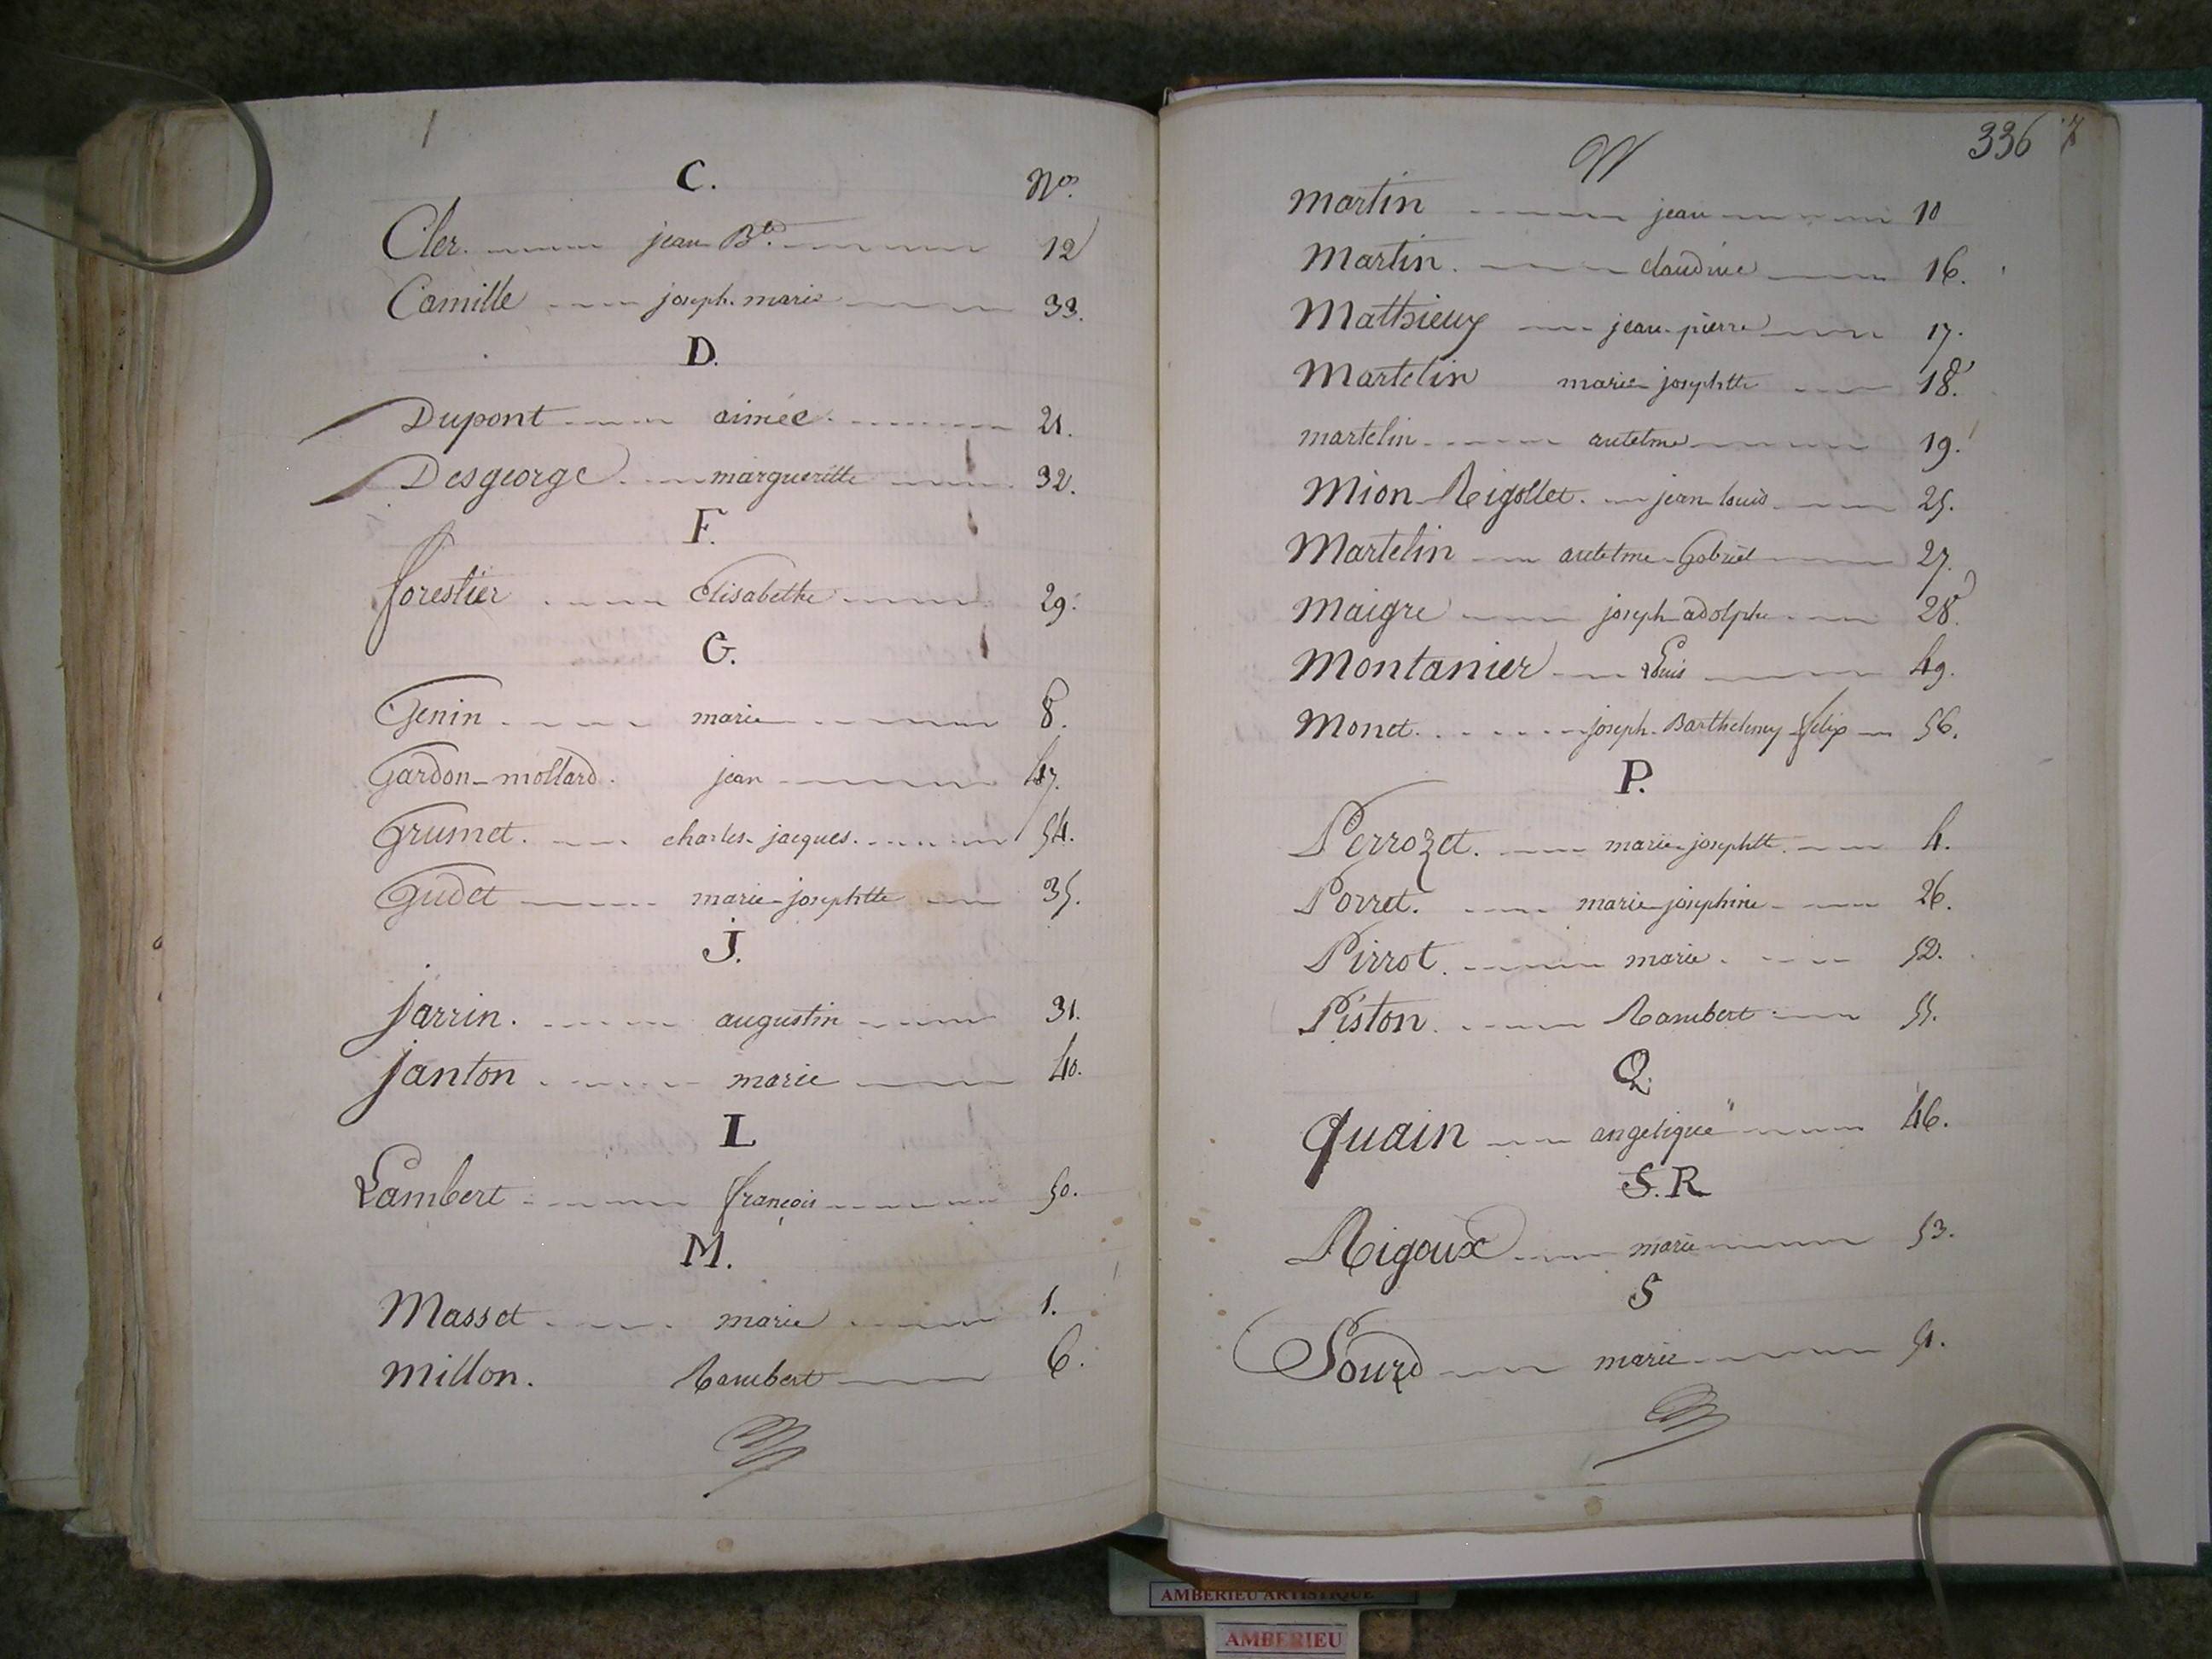 C. Nos.
Cler. jean Bte. 12
Camille joseph. marie 33.
D.
Dupont aimée. 21.
Desgeorge margueritte 32.
F.
forestier Elisabethe 29.
G.
Genin. marie 8.
Gardon-mollard. jean 47.
Grumet. charles-jacques. 54.
Gudet marie-josephtte 35.
J.
jarrin. augustin 31.
janton marie 40.
L
Lambert françois 50.
M.
Masset marie 1.
millon. Rambert 6.
336
martin jean 10
Martin. claudine 16.
Mathieux jean-pierre 17.
Martelin marie-josephtte 18.
martelin antelme 19.
Mion-Rigollet. jean-louis 25.
Martelin antelme-Gabriel 27.
Maigre joseph-adolphe 28.
Montanier Louis 49.
Monet. joseph-Barthelemy-felix 56.
P.
Perrozet. marie-josephtt. 4.
Porret. marie-josephine 26.
Pirrot. marie. 52.
Piston. Rambert 55.
Q.
quain angelique 46.
S. R
Rigoux marie 53.
S
Sourd marie 51.
AMBERIEU ARTISTIQUE
AMBERIEU